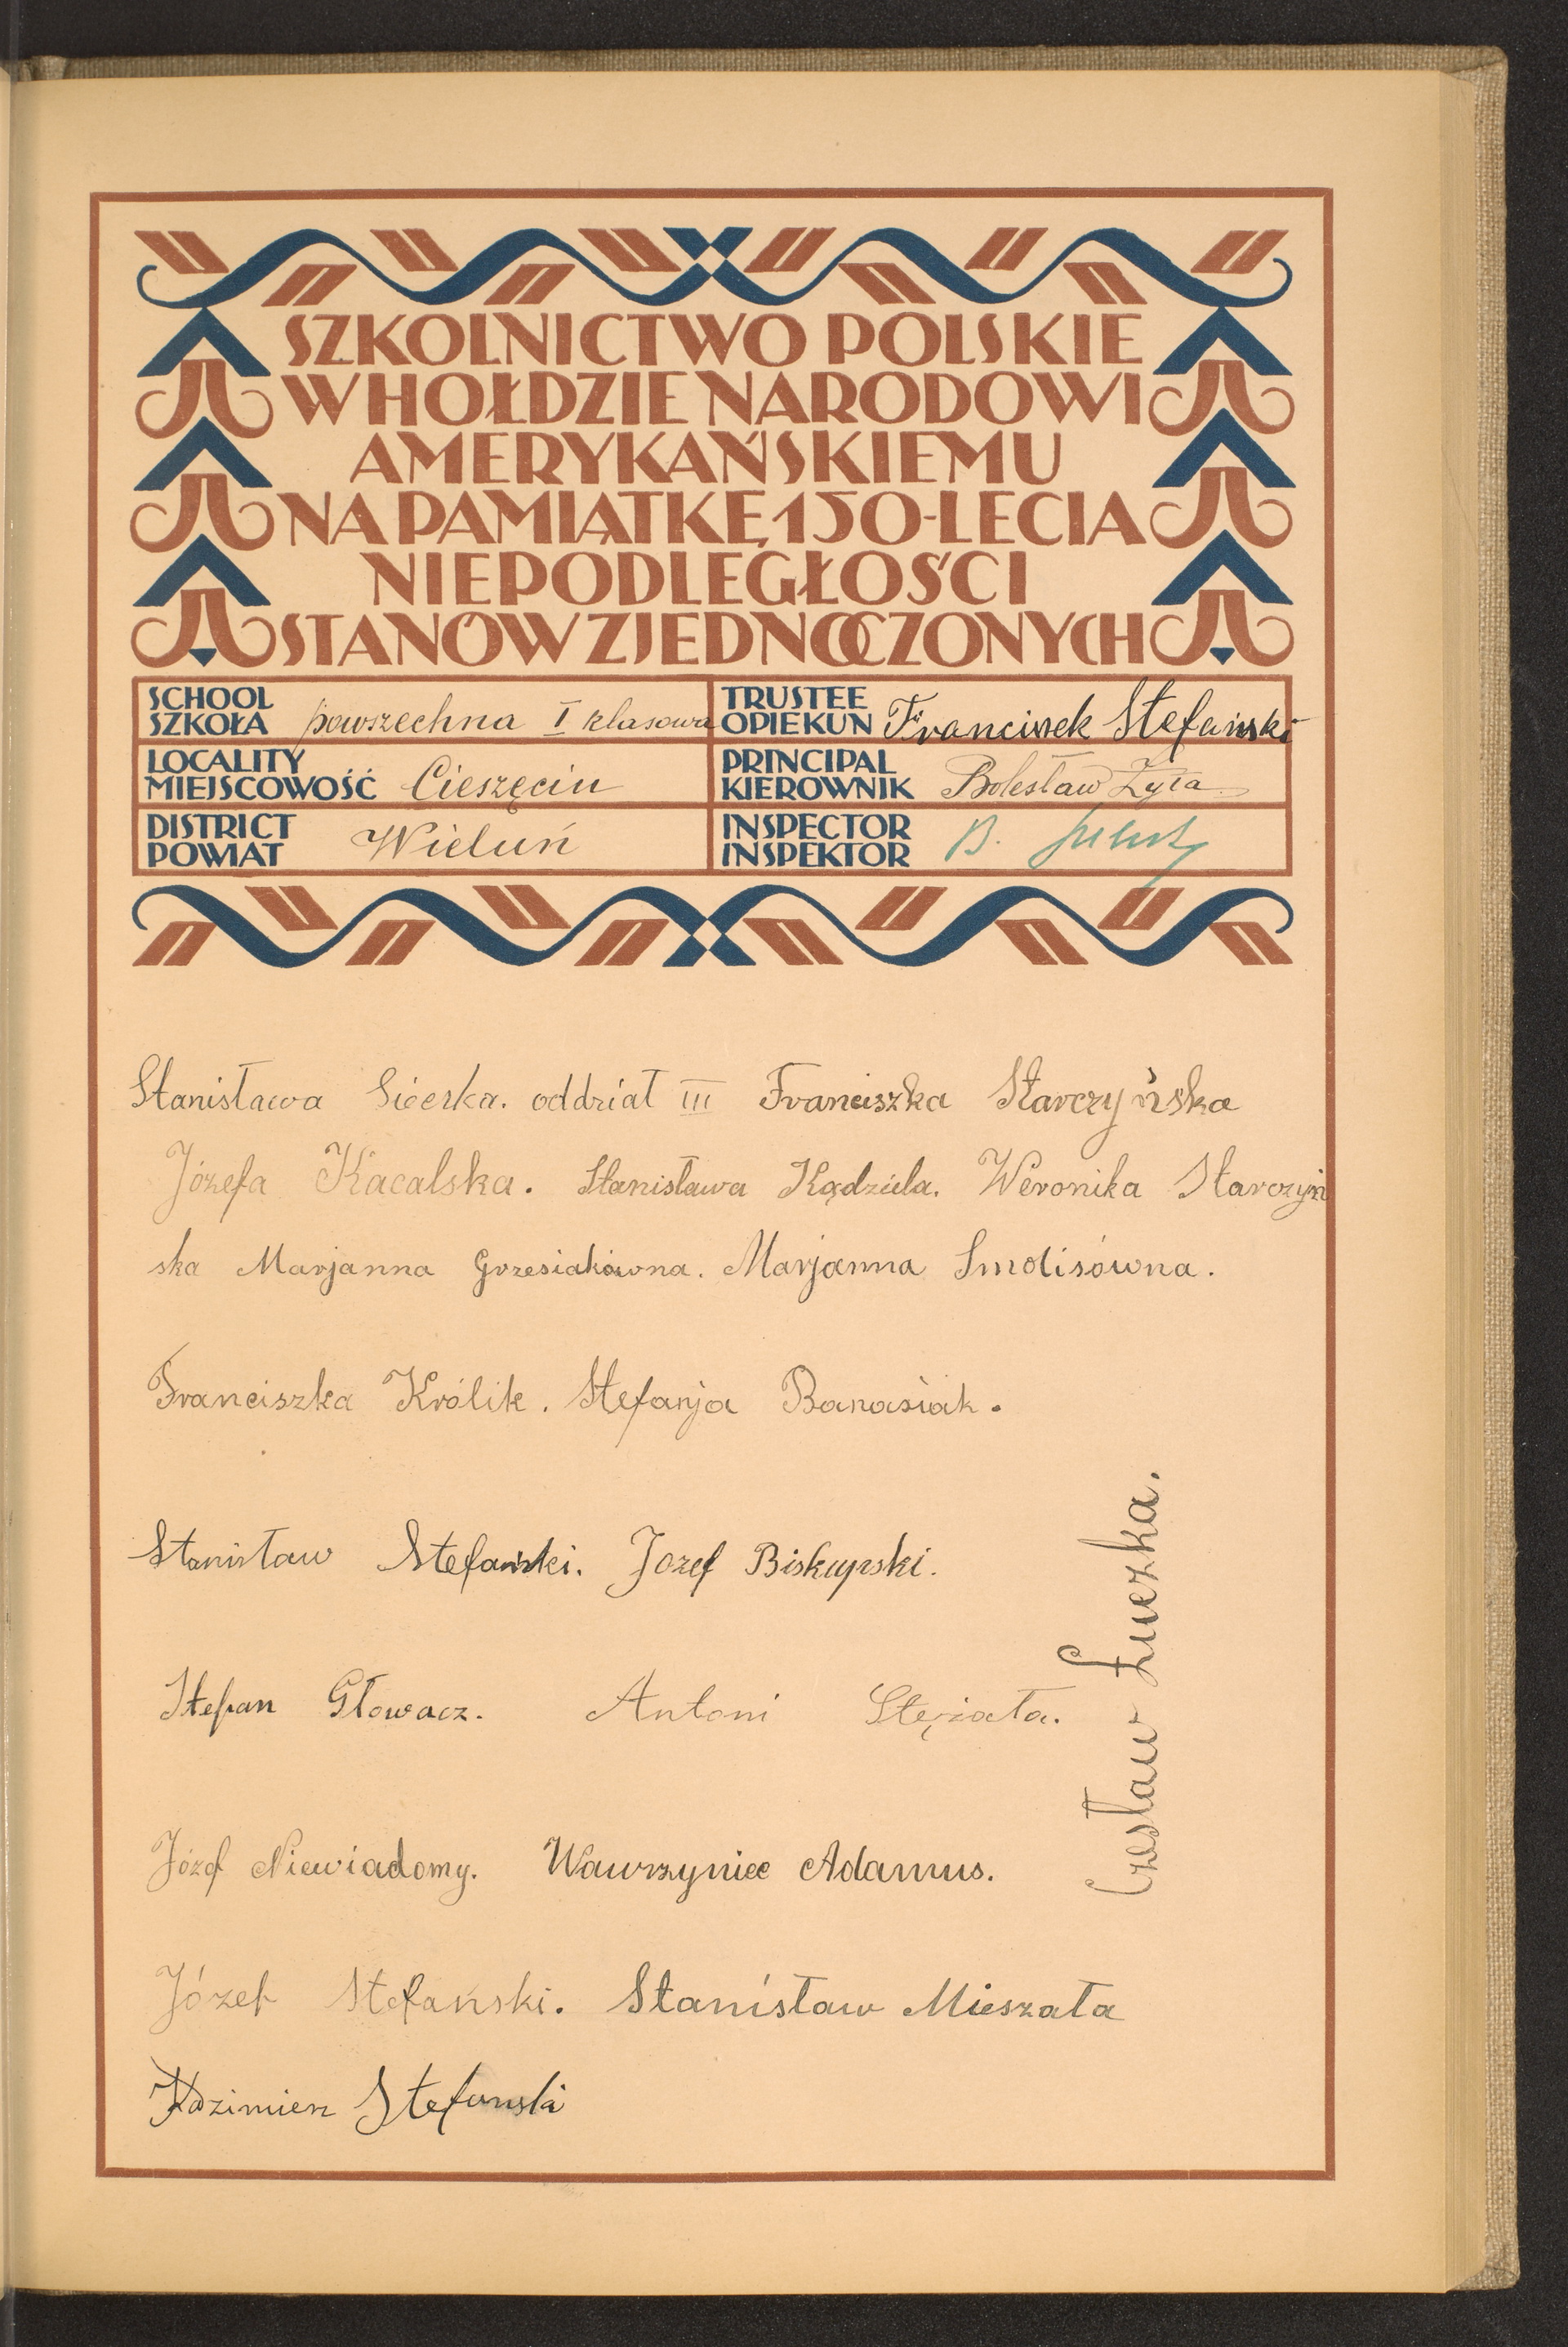 SZKOLNICTWO POLSKIE
W HOŁDZIE NARODOWI
AMERYKAŃSKIEMU
NA PAMIĄTKĘ 150-LECIA
NIEPODLEGŁOŚCI
STANÓW ZJEDNOCZONYCH
SCHOOL
SZKOŁA powszechna I klasowa
TRUSTEE
OPIEKUN Franciszek Stefański
LOCALITY
MIEJSCOWOŚĆ Cieszęcin
PRINCIPAL
KIEROWNIK Bolesław Żyła
DISTRICT
POWIAT Wieluń
INSPECTOR
INSPEKTOR B.
Stanisława Siecska. oddział III Franciszka Starczyńska
Józefa Kacalska. Stanisława Kądziela. Weronika Starczyń
ska Marjanna Grzesiakówna. Marjanna Smolisówna.
Franciszka Królik. Stefanja Banasiak.
Stanisław Stefański. Jozef Biskupski.
Stefan Głowacz. Antoni Stężała.
Czesław Łuczka.
Józef Niewiadomy. Wawrzyniec Adamus.
Józef Stefanski. Stanisław Mieszała
Kazimierz Stefanski